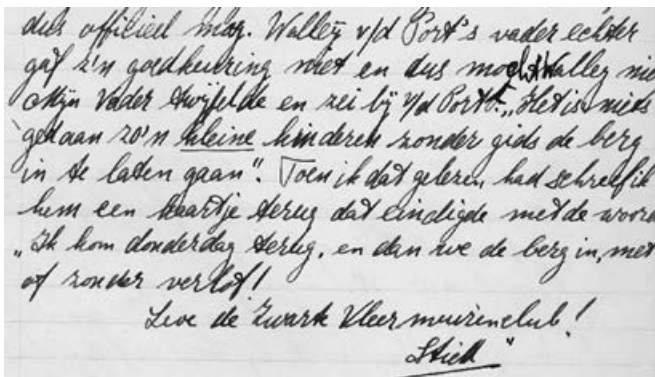 dus officieel mag. Walley v/d Port's vader echter
gaf z'n goedkeuring niet en dus mocht Walley nie
Mijn Vader twijfelde en zei bij v/d Port: "Het is niets
gedaan zo'n kleine kinderen zonder gids de berg
in te laten gaan". Toen ik dat gelezen had schreef ik
hem een kaartje terug dat eindigde met de woord
"Ik kom donderdag terug, en dan we de berg in, met
of zonder verlof!
Leve de Zwarte Vleermuizenclub!